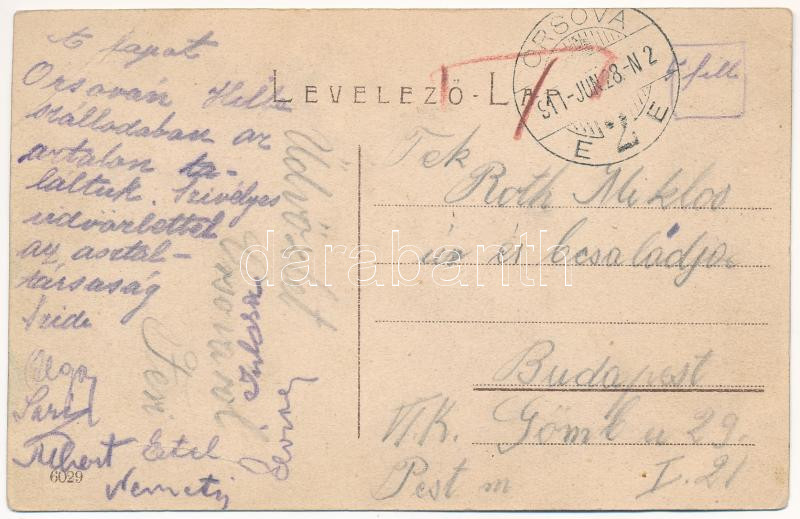 A lapot
Orsován
szállodában az
asztalon ta-
láltuk. Szívélyes
üdvözlettel
az asztal-
társaság
Olga
Sári
Albert Etel
Nemeti
6029
Üdvözlet
Orsováról
Feri
LEVELEZŐ-LAP
ORSOVA
911-JUN 28-N 2
E 2 E
Tek
Roth Miklos
úr és b családja
Budapest
VI. K. Gömb u 29.
Pest m I. 21
darabanth